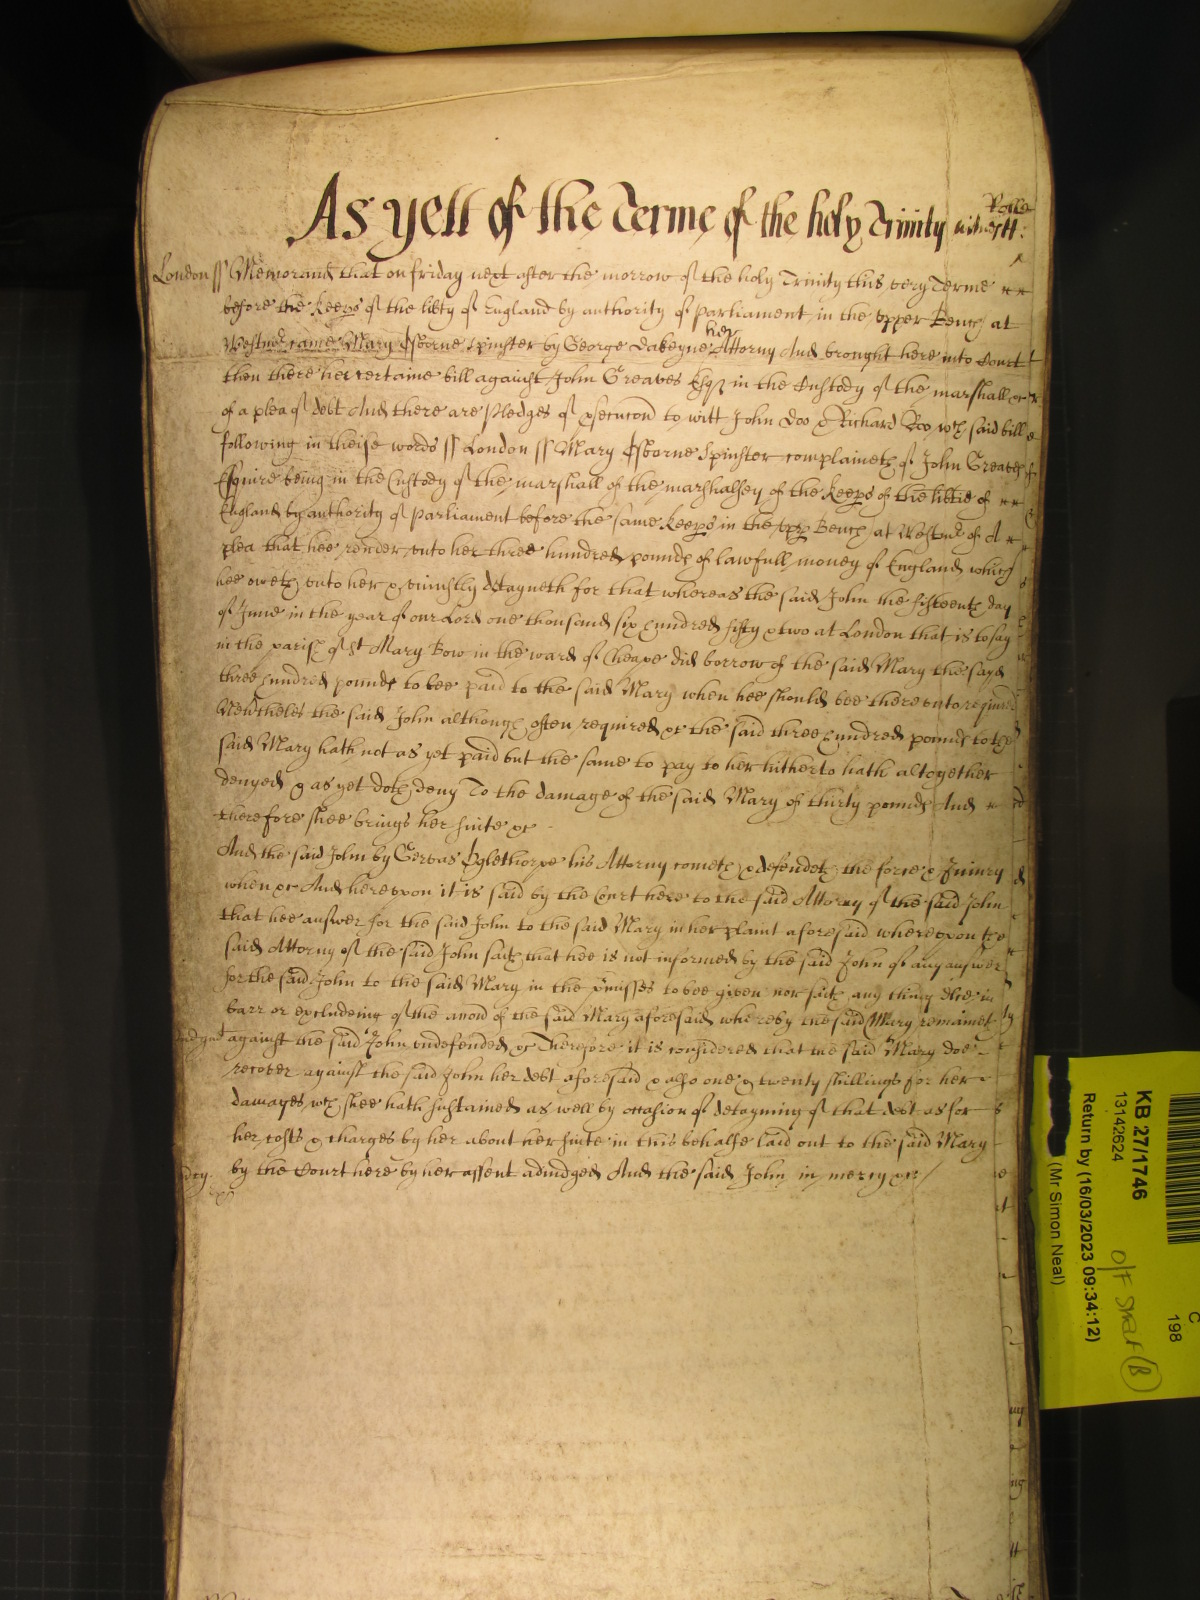 As yett of the Terme of the holy Trinity witnes Rolle
London ss Memorand that on friday next after the morrow of the holy Trinity this very Terme
before the keeps of the libty of England by authority of Parliament in the upper Bench at
Westmr came Mary Osborne Spinster by George Dakeyne her Attorny And brought here into Court
then there her certaine bill against John Greaves Esqr in the Custody of the marshall &c
of a plea of debt And there are Pledges of psecucon to witt John Doo & Richard Roo wch said bill
following in theise words ss London ss Mary Osborne Spinster complaineth of John Greaves
Esquire being in the Custody of the marshall of the marshalsey of the keeps of the libtie of
England by authority of Parliament before the same keeps in the uppr Bench at Westmr of A
plea that hee render unto her three hundred pounds of lawfull money of England which
hee oweth unto her & uniustly detayneth for that whereas the said John the fifteenth day
of June in the year of our Lord one thousand six hundred fifty & two at London that is to say
in the parish of St Mary Bow in the ward of Cheape did borrow of the said Mary the sayd
three hundred pounds to bee paid to the said Mary when hee should bee thereunto required
Nevrtheles the said John although often required &c the said three hundred pounds to the
said Mary hath not as yet paid but the same to pay to her hitherto hath altogether
denyed & as yet doth deny To the damage of the said Mary of thirty pounds And
therefore shee brings her suite &c
And the said John by Gervas Oglethorpe his Attorny cometh & defendeth the force & Iniury
when &c And hereupon it is said by the Court here to the said Attorny of the said John
that hee answer for the said John to the said Mary in her plaint aforesaid whereupon the
said Attorny of the said John saith that hee is not informed by the said John of any answer
for the said John to the said Mary in the pmisses to bee given nor saith any thing else in
barr or excludeing of the accon of the said Mary aforesaid whereby the said Mary remaineth
Iudgmt against the said John undefended &c Therefore it is considered that the said Mary doe
recover against the said John her debt aforesaid & also one & twenty shillings for her
damages wch shee hath sustained as well by occasion of detayning of that debt as for
her costs & charges by her about her suite in this behalfe laid out to the said Mary
mercy by the Court here by her assent adiudged And the said John in mercy &c
KB 27/1746
13142624
Return by (16/03/2023 09:34:12)
(Mr Simon Neal)
C
198
O/F
B